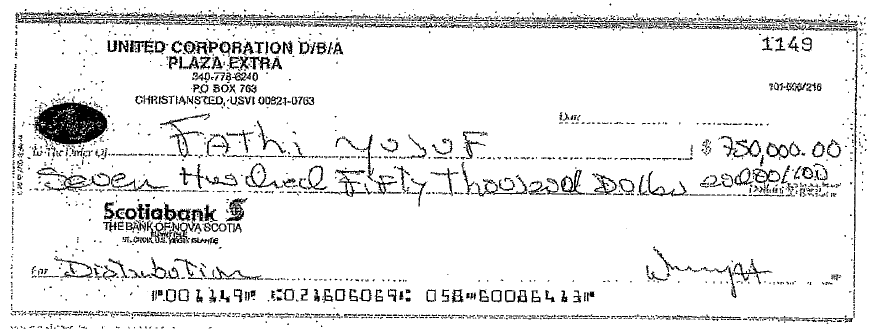 UNITED CORPORATION D/B/A
PLAZA EXTRA
340-778-6240
PO BOX 763
CHRISTIANSTED, USVI 00821-0763
1149
101-606/216
Date
To The Order Of Fathi Yusuf $ 750,000.00
Seven Hundred Fifty Thousand Dollars and 00/100
Scotiabank
THE BANK OF NOVA SCOTIA
ST. CROIX, U.S. VIRGIN ISLANDS
For Distribution
⑈001149⑈ ⑆021606069⑆ 058⑉60086413⑈